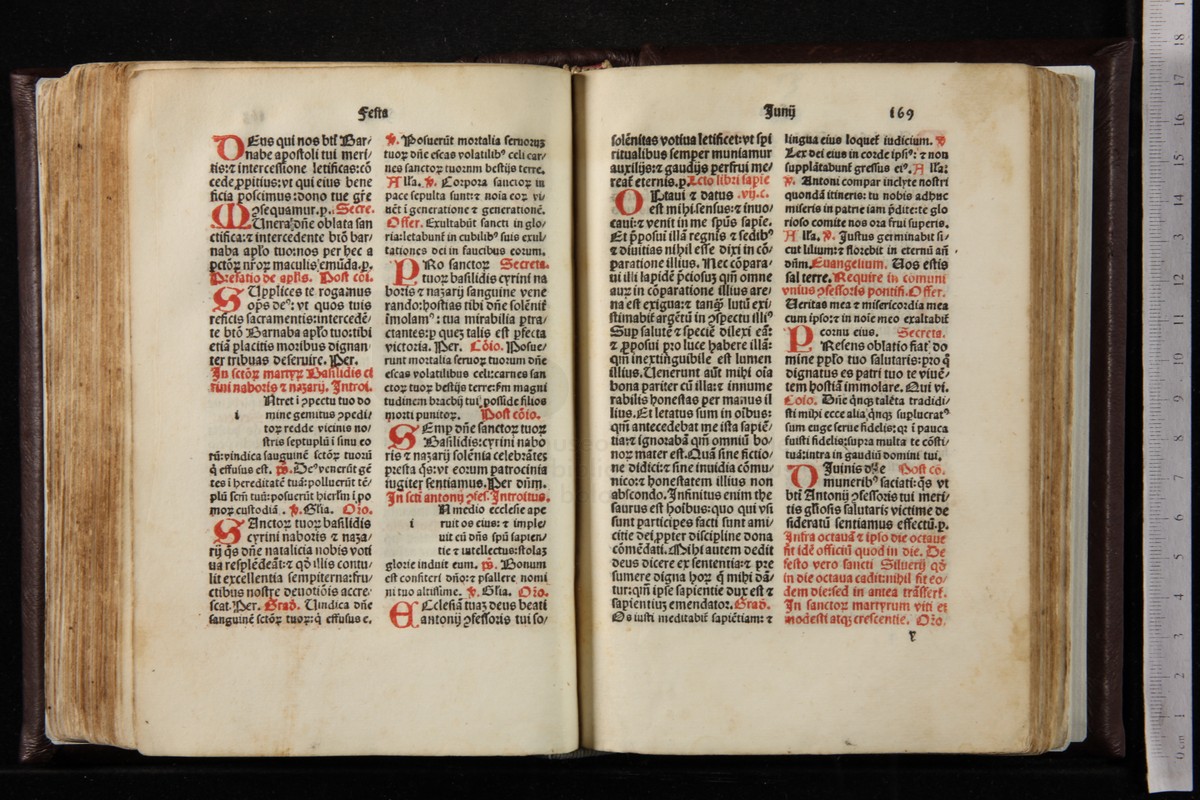 Festa
DEus qui nos bt̃i Bar/
nabe apostoli tui meri/
tis: ⁊ intercessione letificas: cō
cede ꝓpitius: vt qui eius bene
ficia poscimus: dono tue gr̄e
ꝯsequamur. p. Secre.
MUnera dn̄e oblata san
ctifica: ⁊ intercedente btō bar/
naba apl̄o tuo: nos per hec a
pctōꝝ nr̄oꝝ maculis emūda. p.
Prefatio de apl̄is. Post cōi.
SUpplices te rogamus
oīps deꝰ: vt quos tuis
reficis sacramentis: intercedē/
te btō Barnaba apl̄o tuo: tibi
etiā placitis moribus dignan/
ter tribuas deseruire. Per.
In sctōꝝ martyꝝ Basilidis ci
rini naboris ⁊ nazarij. Introi.
iNtret ī ꝯspectu tuo do
mine gemitus ꝯpedi/
toꝝ redde vicinis no/
stris septuplū ī sinu eo
rū: vindica sanguinē sctōꝝ tuorū
q̄ effusus est. ps. Deꝰ venerūt gē
tes ī hereditatē tuā: polluerūt tē/
plū sctm̄ tuū: posuerūt hierlm̄ ī po
moꝝ custodiā. ℣. Glīa. Oro.
SAnctoꝝ tuoꝝ basilidis
cyrini naboris ⁊ naza/
rij q̄s dn̄e natalicia nobis voti
ua resplēdeāt: ⁊ qd̄ illis contu/
lit excellentia sempiterna: fru/
ctibus nostre deuotiōis accre/
scat. Per. Grad. Uindica dn̄e
sanguinē sctōꝝ tuoꝝ: q̄ effusus e.
℣. Posuerūt mortalia seruoꝝ
tuoꝝ dn̄e escas volatilibꝰ celi car/
nes sanctoꝝ tuorum bestijs terre.
Alla. ℣. Corpora sanctoꝝ in
pace sepulta sunt: ⁊ noīa eoꝝ vi/
uēt ī generatione ⁊ generationē.
Offer. Exultabūt sancti in glo/
ria: letabunt̄ in cubilibꝰ suis exul/
tationes dei in faucibus eorum.
PRo sanctoꝝ Secreta.
tuoꝝ basilidis cyrini na
boris ⁊ nazarij sanguine vene
rando: hostias tibi dn̄e solēnit̄
īmolamꝰ: tua mirabilia ꝑtra/
ctantes: ꝑ quez talis est ꝑfecta
victoria. Per. Cōio. Posue/
runt mortalia seruoꝝ tuorum dn̄e
escas volatilibus celi: carnes san
ctoꝝ tuoꝝ bestijs terre: sm̄ magni
tudinem brachij tui, posside filios
morti punitoꝝ. Post cōio.
SEmꝑ dn̄e sanctoꝝ tuoꝝ
Basilidis: cyrini nabo
ris ⁊ nazarij solēnia celebrātes
presta q̄s: vt eorum patrocinia
iugiter sentiamus. Per dn̄m.
In scti antonij ꝯfes. Introitus.
iN medio ecclesie ape
ruit os eius: ⁊ imple/
uit eū dn̄s spū sapien/
tie ⁊ intellectus: stolaz
glorie induit eum. ps. Bonum
est confiteri dn̄o: ⁊ psallere nomi
ni tuo altissime. ℣. Glīa. Oro.
EEclesiā tuaz deus beati
antonij ꝯfessoris tui so/
Junij 169
solēnitas votiua letificet: vt spi
ritualibus semper muniamur
auxilijs: ⁊ gaudijs perfrui me/
reat̄ eternis. p. Lctio libri sapiē
OPtaui ⁊ datus .vij.c.
est mihi sensus: ⁊ inuo/
caui: ⁊ venit in me spūs sapiē.
Et p̄posui illā regnis ⁊ sedibꝰ
⁊ diuitias nihil esse dixi in cō/
paratione illius. Nec cōpara/
ui illi lapidē p̄ciosuꝫ qm̄ omne
auꝝ in cōparatione illius are/
na est exigua: ⁊ tanq̄ȝ lutū exi/
stimabit̄ argētū in ꝯspectu illiꝰ
Sup salutē ⁊ speciē dilexi eā:
⁊ ꝓposui pro luce habere illā:
qm̄ inextinguibile est lumen
illius. Uenerunt aūt mihi oīa
bona pariter cū illa: ⁊ innume
rabilis honestas per manus il
lius. Et letatus sum in oībus:
qm̄ antecedebat me ista sapiē/
tia: ⁊ ignorabā qm̄ omniū bo/
noꝝ mater est. Quā sine fictio/
ne didici: ⁊ sine inuidia cōmu/
nico: ⁊ honestatem illius non
abscondo. Infinitus enim the
saurus est hoībus: quo qui vsi
sunt participes facti sunt ami/
citie dei ꝓpter discipline dona
cōmēdati. Mihi autem dedit
deus dicere ex sententia: ⁊ pre
sumere digna hoꝝ q̄ mihi dā/
tur: qm̄ ipse sapientie dux est ⁊
sapientiuȝ emendator. Grad.
Os iusti meditabit̄ sapiētiam: ⁊
lingua eius loquet̄ iudicium. ℣
Lex dei eius in corde ipsiꝰ: ⁊ non
supplātabunt̄ gressus eiꝰ. Alla:
℣. Antoni compar inclyte nostri
quondā itineris: tu nobis adhuc
miseris in patriē iam p̄dite: te glo
rioso comite nos ora frui superis.
Alla. ℣. Justus germinabit si/
cut lilium: ⁊ florebit in eternū añ
dn̄m. Euangelium. Uos estis
sal terre. Require in comuni
vnius ꝯfessoris pontifi. Offer.
Ueritas mea ⁊ misericordia mea
cum ipso: ⁊ in noīe meo exaltabit̄
cornu eius. Secreta.
PResens oblatio fiat do
mine pplō tuo salutaris: pro q̄
dignatus es patri tuo te viuē/
tem hostiā immolare. Qui vi.
Coīo. Dn̄e q̄nqȝ talēta tradidi/
sti mihi ecce alia q̄nqȝ supluc̄ratꝰ
sum euge serue fidelis: qꝛ ī pauca
fuisti fidelis: supra multa te cōsti/
tuā: intra in gaudiū domini tui.
DIuinis dn̄e Post cō.
muneribꝰ saciati: q̄s vt
bt̄i Antonij ꝯfessoris tui meri/
tis gl̄iosis salutaris victime de
sideratū sentiamus effectū. p.
Infra octauā ⁊ ipso die octaue
fit idē officiū quod in die. De
festo vero sancti Siluerij qd̄
in die octaua cadit: nihil fit eo/
dem die: sed in antea trāsfert̄.
In sanctoꝝ martyrum viti et
modesti atqȝ crescentie. Oro.
y